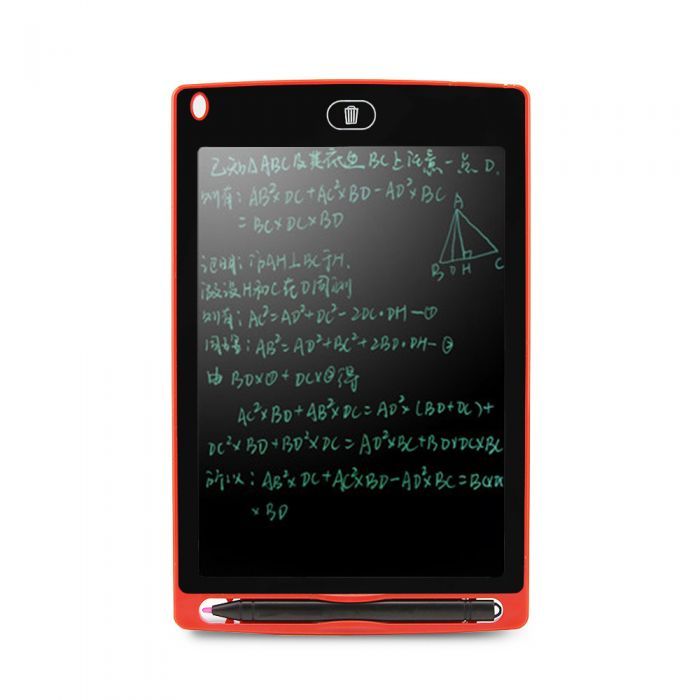 已知△ABC及其底边BC上任意一点D.
则有:AB²×DC+AC²×BD-AD²×BC
=BC×DC×BD
A
B D H C
证明:作AH⊥BC于H.
假设H和C在D同侧
则有:AC²=AD²+DC²-2DC·DH-①
同理:AB²=AD²+BC²+2BD·DH-②
由BD×①+DC×②得
AC²×BD+AB²×DC=AD²×(BD+DC)+
DC²×BD+BD²×DC=AD²×BC+BD×DC×BC
所以:AB²×DC+AC²×BD-AD²×BC=BC×DC
×BD